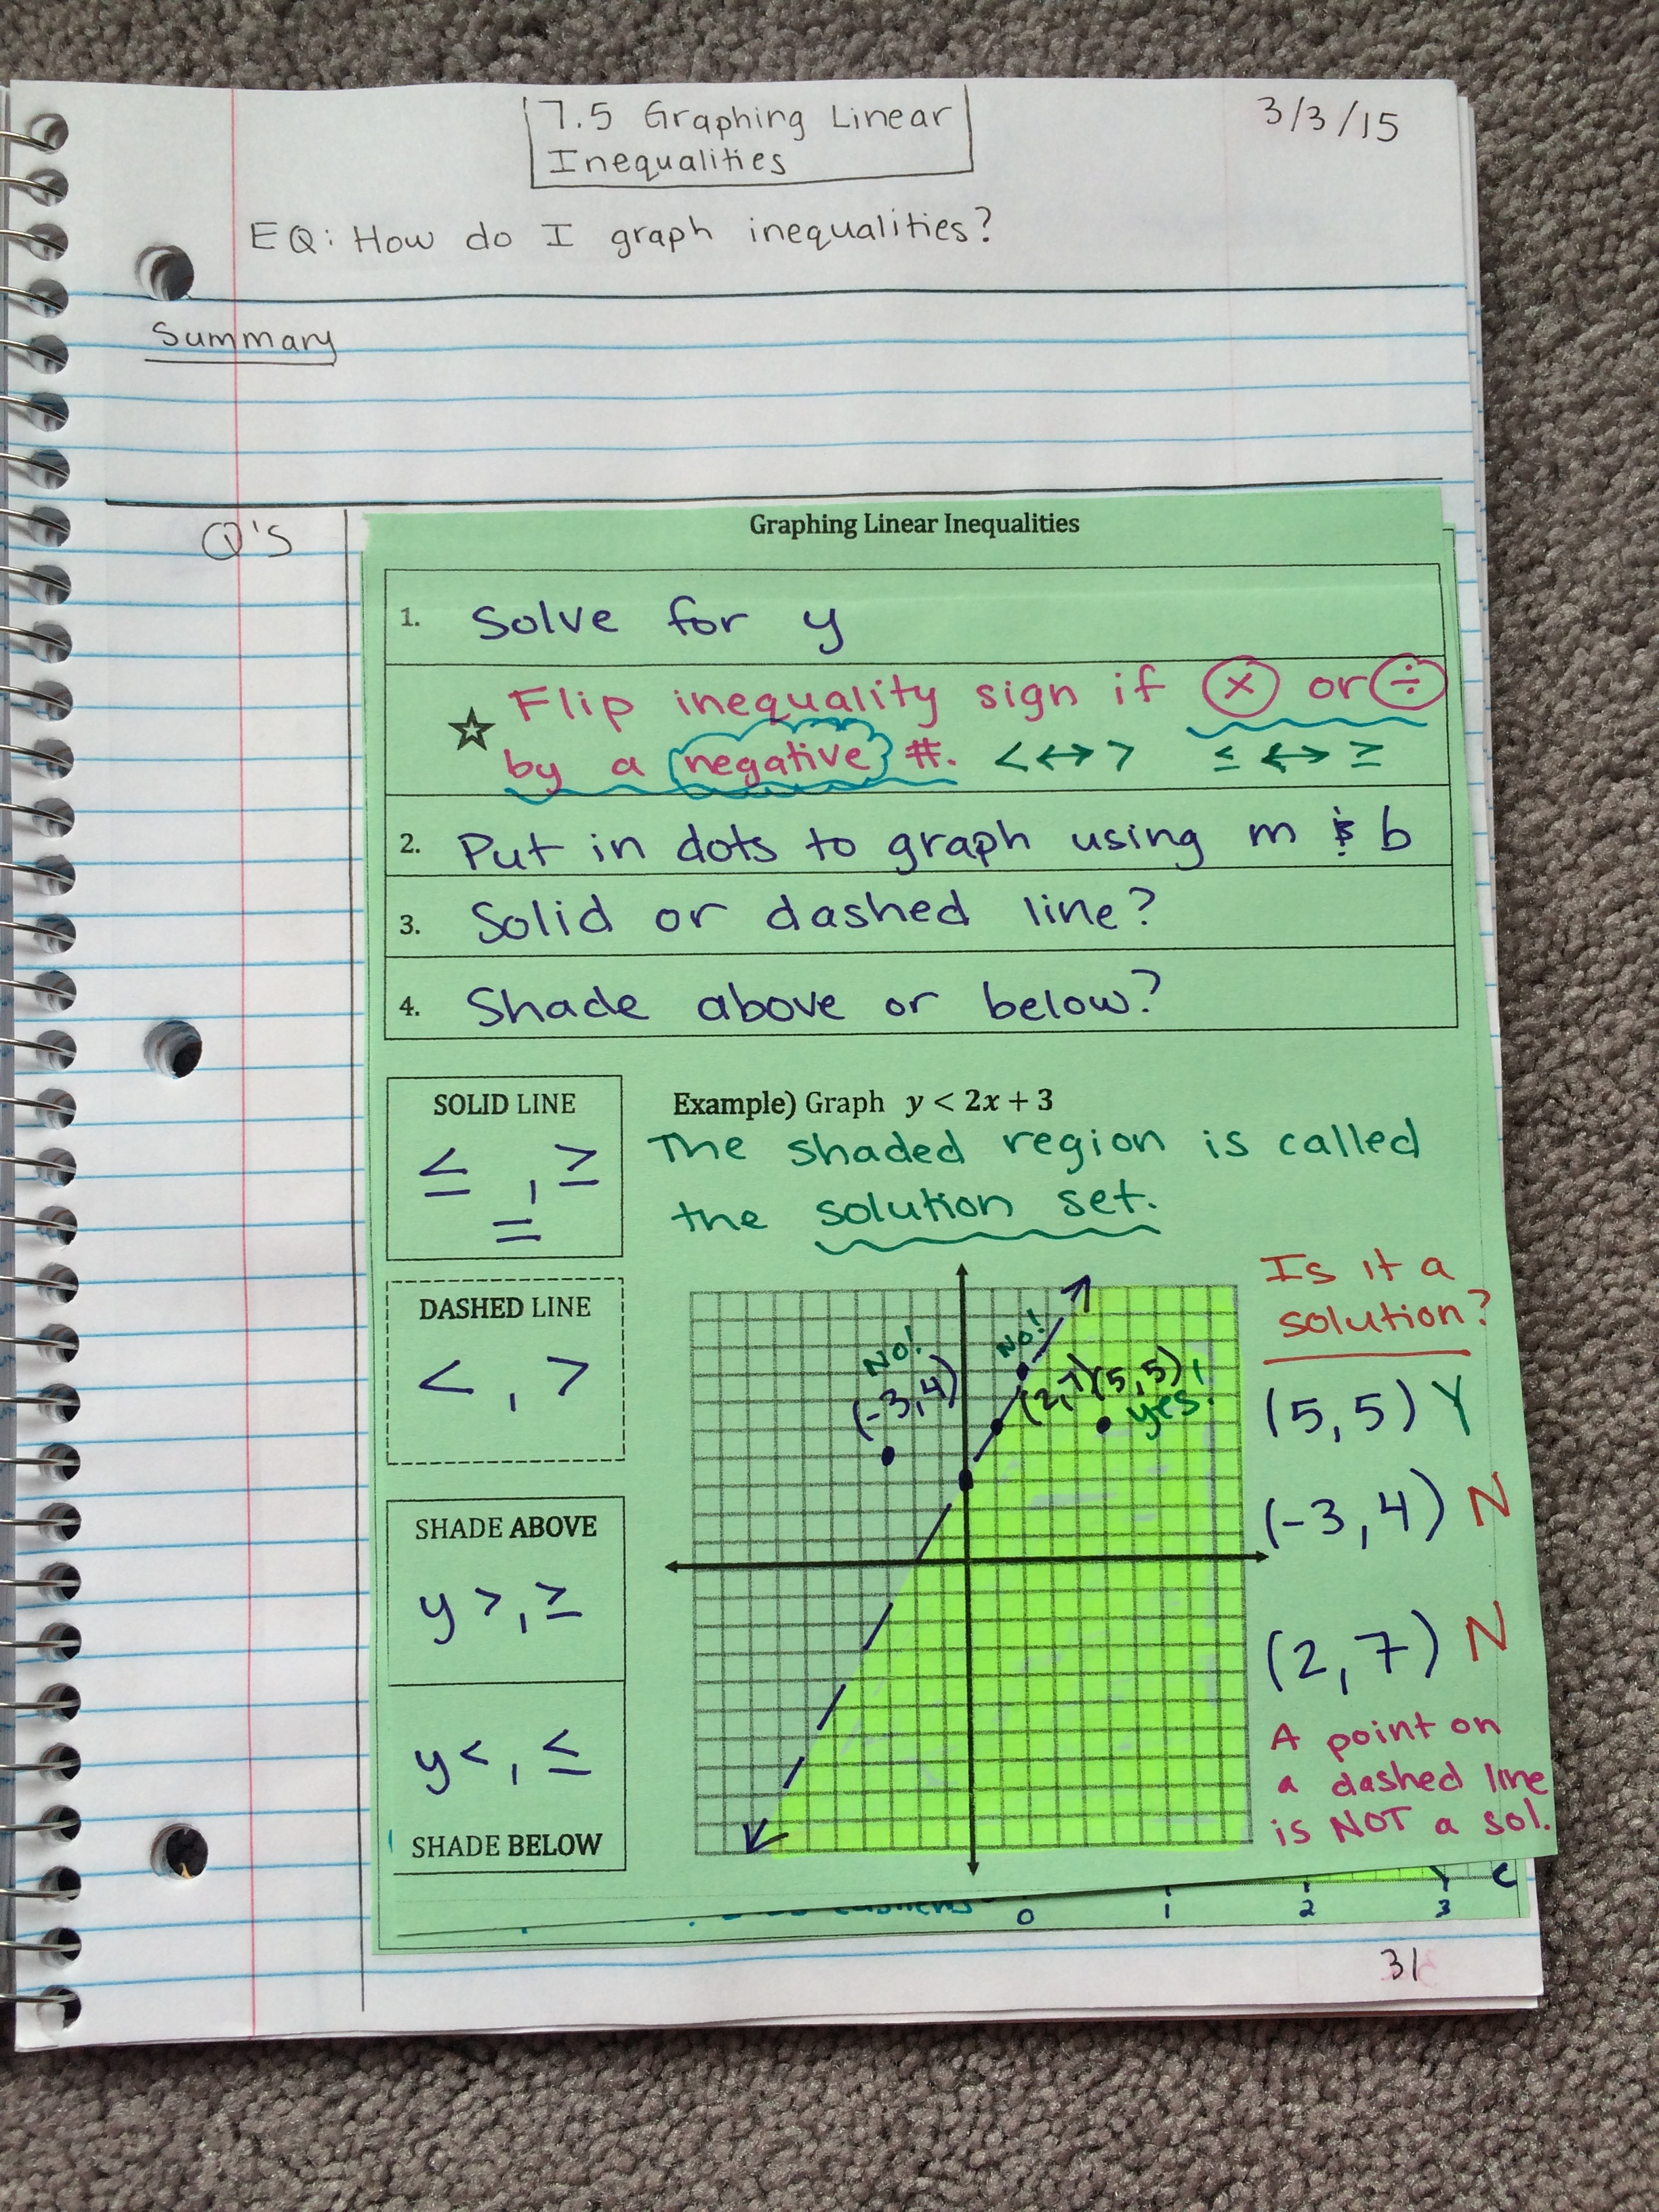 7.5 Graphing Linear
Inequalities
3/3/15
EQ: How do I graph inequalities?
Summary
Q's
Graphing Linear Inequalities
1. Solve for y
☆ Flip inequality sign if × or ÷
by a negative #. < ↔ > ≤ ↔ ≥
2. Put in dots to graph using m & b
3. Solid or dashed line?
4. Shade above or below?
SOLID LINE
≤ , ≥
=
DASHED LINE
< , >
SHADE ABOVE
y > , ≥
y < , ≤
SHADE BELOW
Example) Graph y < 2x + 3
The shaded region is called
the solution set.
NO!
(-3,4)
NO!
(2,7)
(5,5)
yes!
Is it a
solution?
(5,5) Y
(-3,4) N
(2,7) N
A point on
a dashed line
is NOT a sol.
0 1 2 3
31